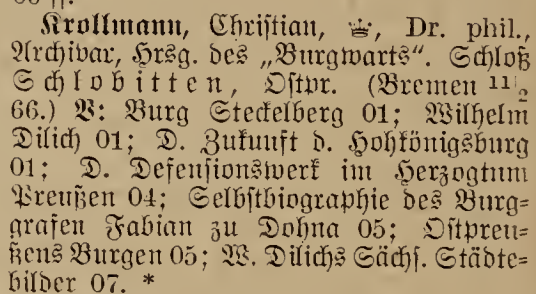 Krollmann, Christian, Dr. phil.,
Archivar, Hrsg. des „Burgwarts“. Schloß
Schlobitten, Ostpr. (Bremen 11/2
66.) V: Burg Steckelberg 01; Wilhelm
Dilich 01; D. Zukunft d. Hohkönigsburg
01; D. Defensionswerk im Herzogtum
Preußen 04; Selbstbiographie des Burg=
grafen Fabian zu Dohna 05; Ostpreu=
ßens Burgen 05; W. Dilichs Sächs. Städte=
bilder 07. *